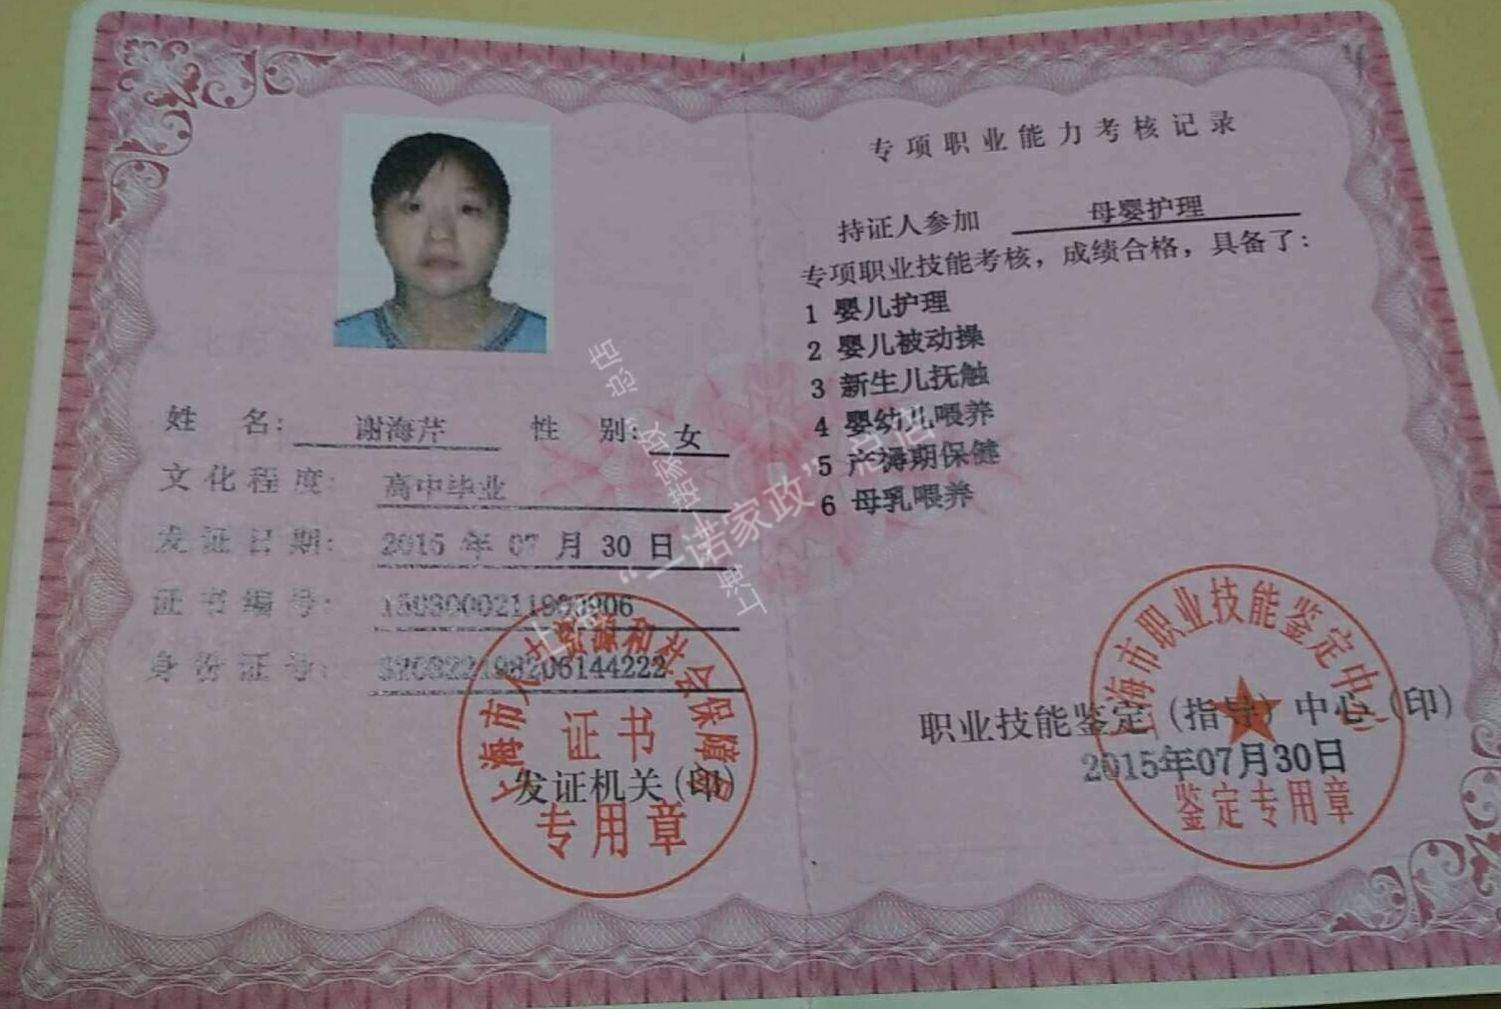 姓 名: 谢海芹 性 别: 女
文化程度: 高中毕业
发证日期: 2015 年 07 月 30 日
证书编号:
身份证号:
发证机关(印)
上海市人力资源和社会保障局
证书
专用章
专项职业能力考核记录
持证人参加 母婴护理
专项职业技能考核，成绩合格，具备了:
1 婴儿护理
2 婴儿被动操
3 新生儿抚触
4 婴幼儿喂养
5 产褥期保健
6 母乳喂养
职业技能鉴定(指导)中心(印)
2015年07月30日
上海市职业技能鉴定中心
鉴定专用章
上海“一诺家政”总店
上海“一诺家政”总店